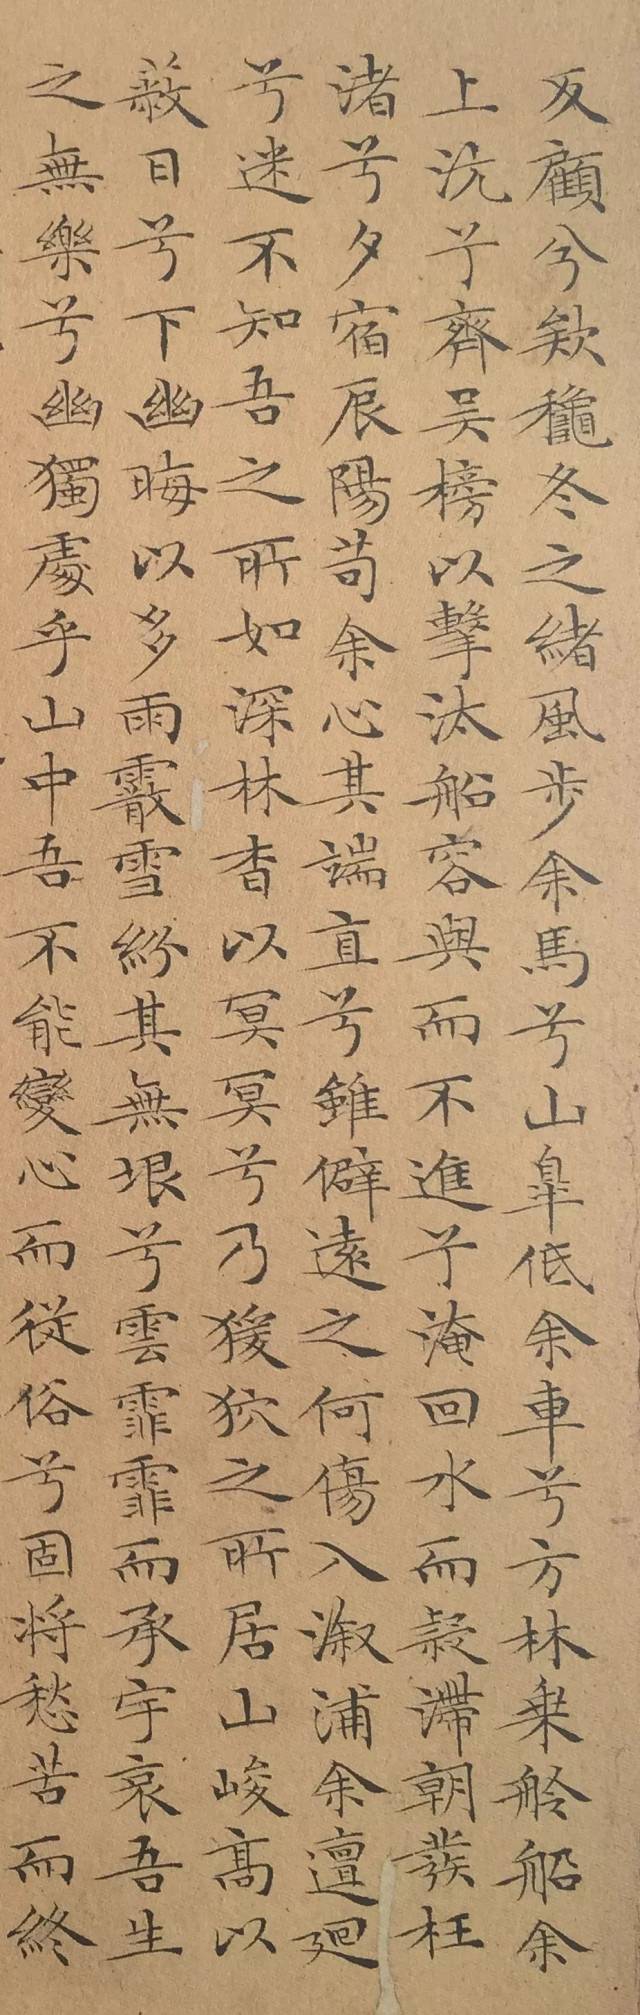 反顧兮欸穐冬之緒風步余馬兮山臯低余車兮方林乗舲船余
上沅兮齊吴榜以擊汰船容與而不進兮淹回水而疑滯朝發枉
渚兮夕宿辰陽苟余心其端直兮雖僻遠之何傷入溆浦余邅廻
兮迷不知吾之所如深林杳以冥冥兮乃猨狖之所居山峻髙以
蔽日兮下幽晦以多雨霰雪紛其無垠兮雲霏霏而承宇哀吾生
之無樂兮幽獨處乎山中吾不能變心而從俗兮固将愁苦而終